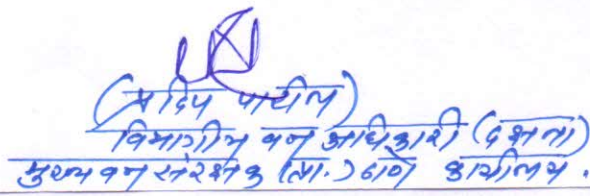 (प्रदिप पाटील)
विभागीय वन अधिकारी (दक्षता)
मुख्य वन संरक्षक (प्रा.) ठाणे कार्यालय.